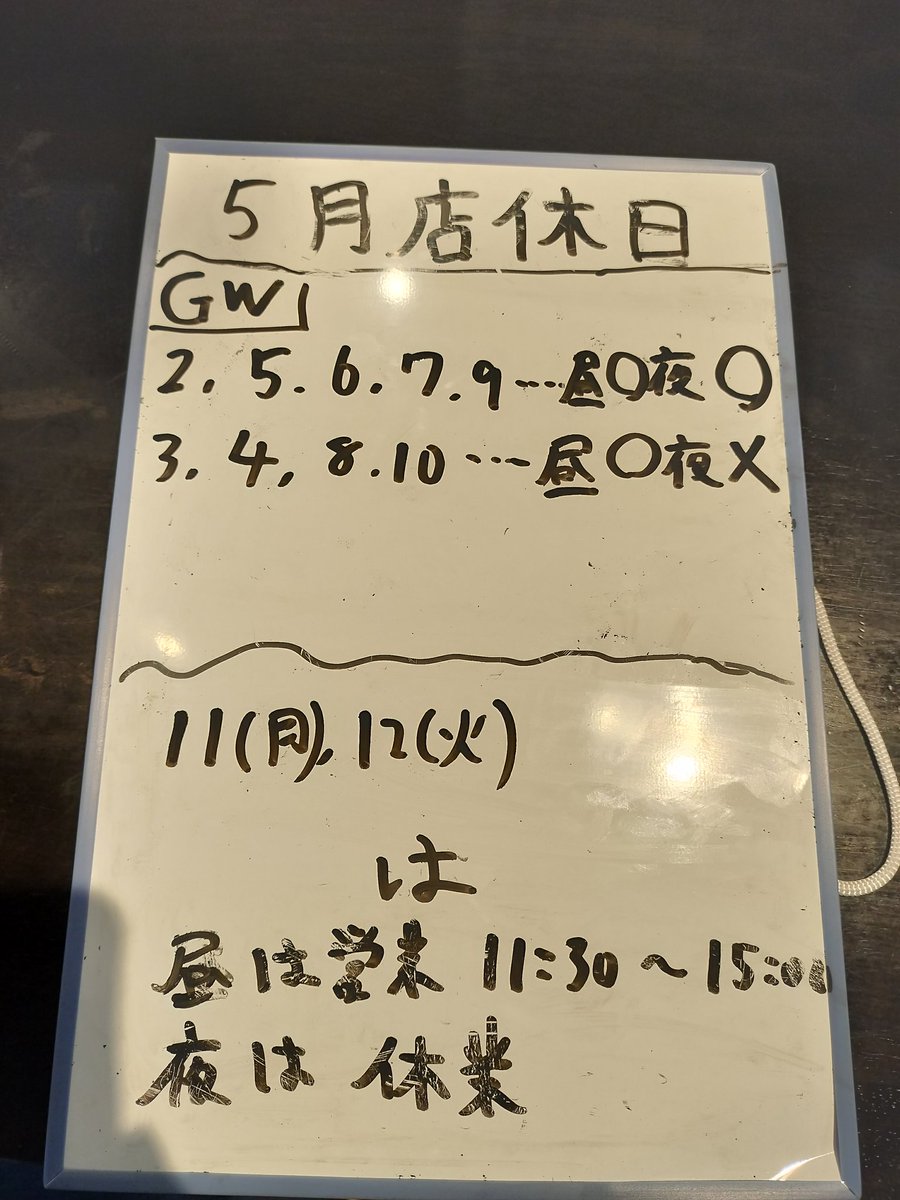 5月店休日
GW
2.5.6.7.9…昼○夜○
3.4,8.10…昼○夜×
11(月),12(火)
は
昼は営業 11:30〜15:00
夜は休業